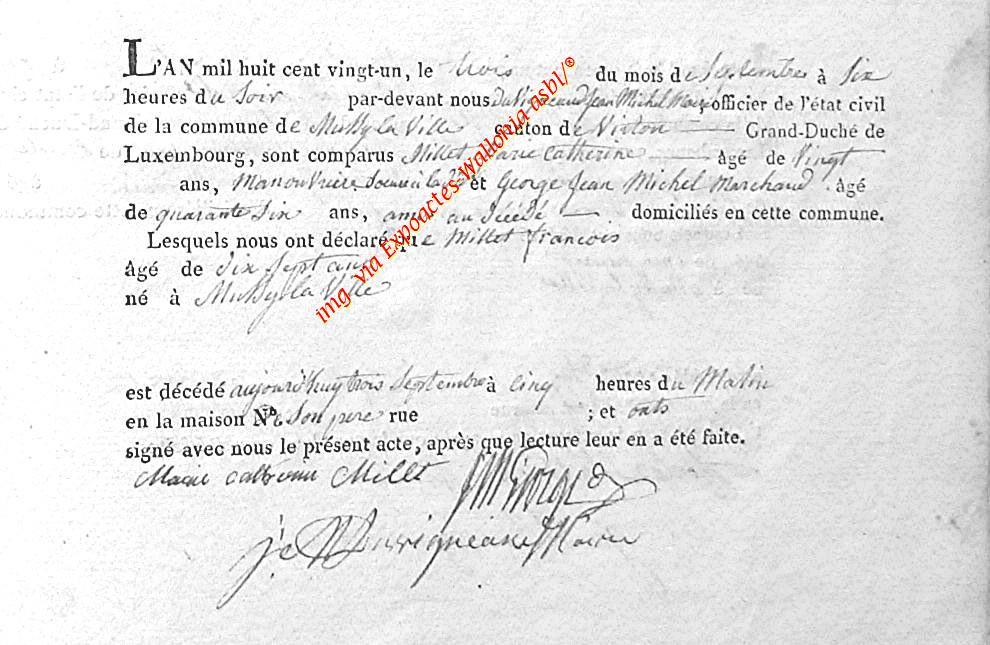 L'AN mil huit cent vingt-un, le trois du mois de Septembre à Six
heures du Soir par-devant nous Duvigneaud Jean Michel Maire, officier de l'état civil
de la commune de Mussy la Ville canton de Virton Grand-Duché de
Luxembourg, sont comparus Millet Marie Catherine âgé de Vingt
ans, Manouvriere Soeur et George Jean Michel Marchand âgé
de quarante Six ans, ami au décédé domiciliés en cette commune.
Lesquels nous ont déclaré que Millet francois
âgé de dix Sept ans
né à Mussy la Ville
est décédé aujourd'huy trois Septembre à cinq heures du Matin
en la maison de Son pere rue ; et onts
signé avec nous le présent acte, après que lecture leur en a été faite.
Marie catherine Millet
img via Expoactes-Wallonia asbl/®